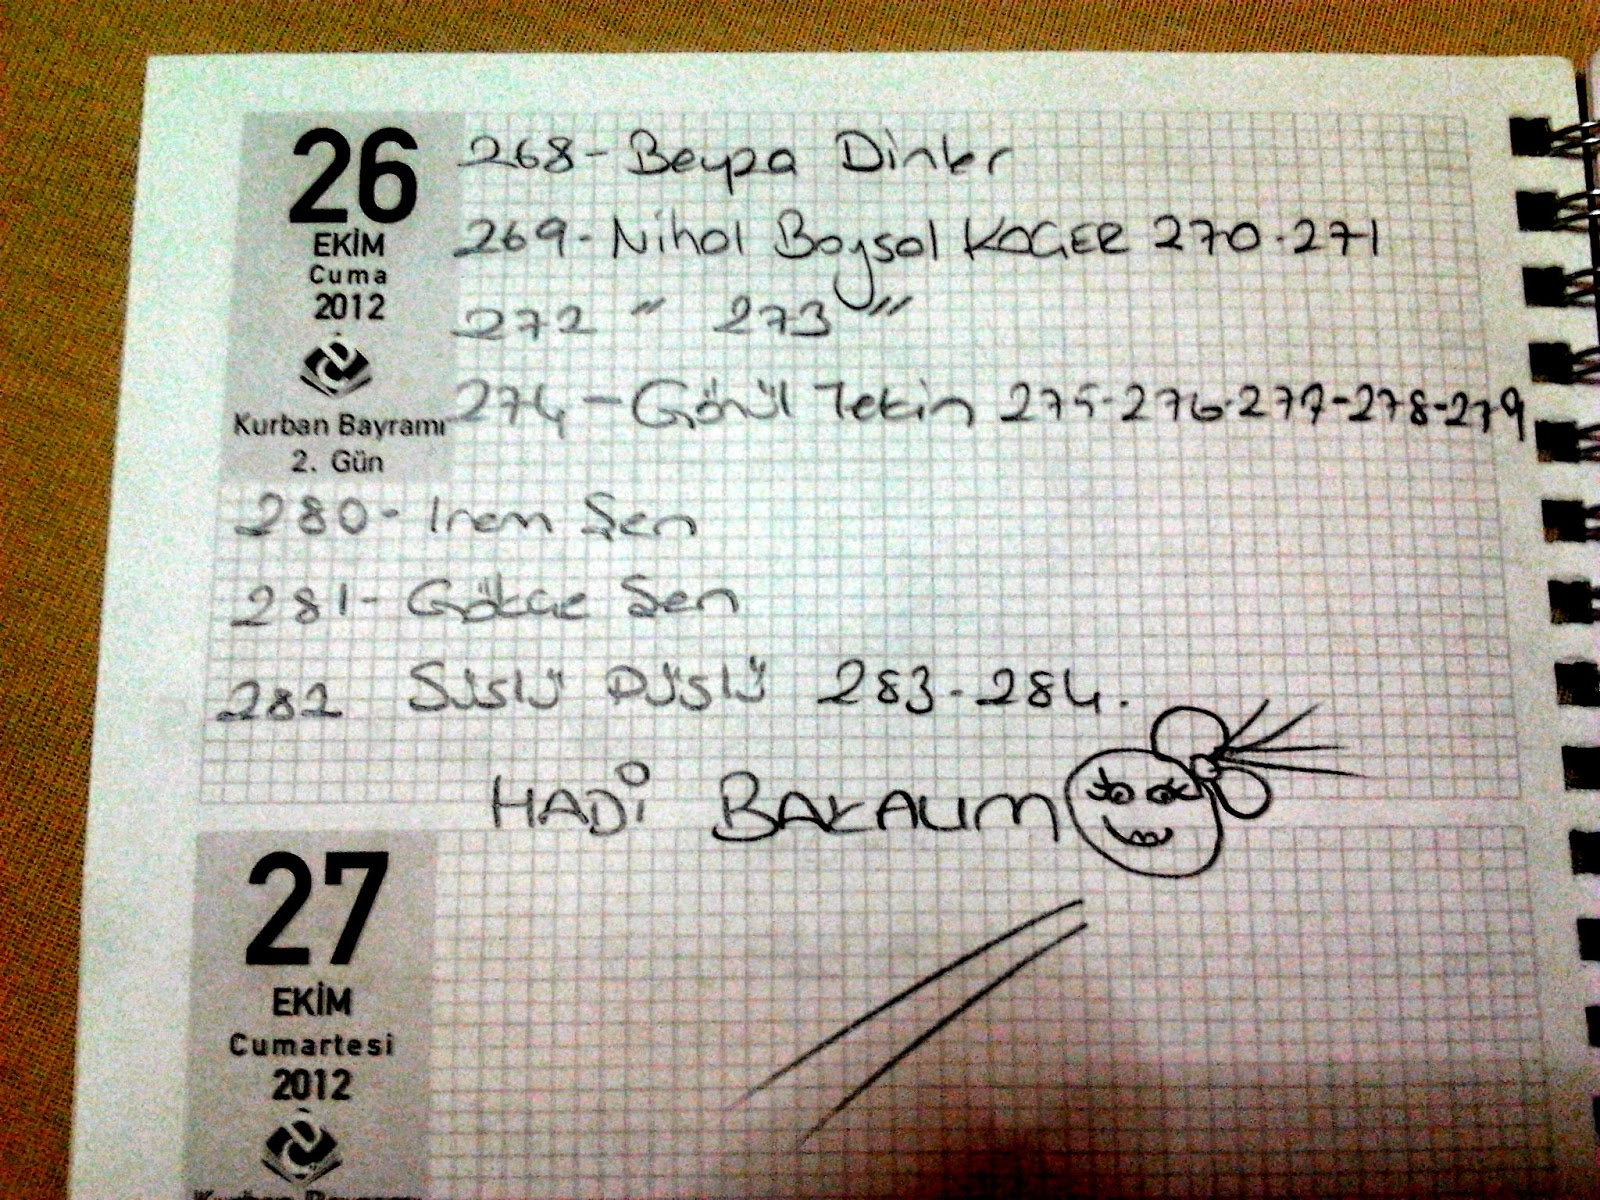 26
EKİM
Cuma
2012
Kurban Bayramı
2. Gün
268- Beyza Dinler
269- Nihal Baysal KOÇER 270-271
272 " 273 "
274 - Gönül Tekin 275-276-277-278-279
280- Irem Şen
281- Gökçe Şen
282 Süslü Düşlü 283-284.
HADİ BAKALIM
27
EKİM
Cumartesi
2012
Kurban Bayramı